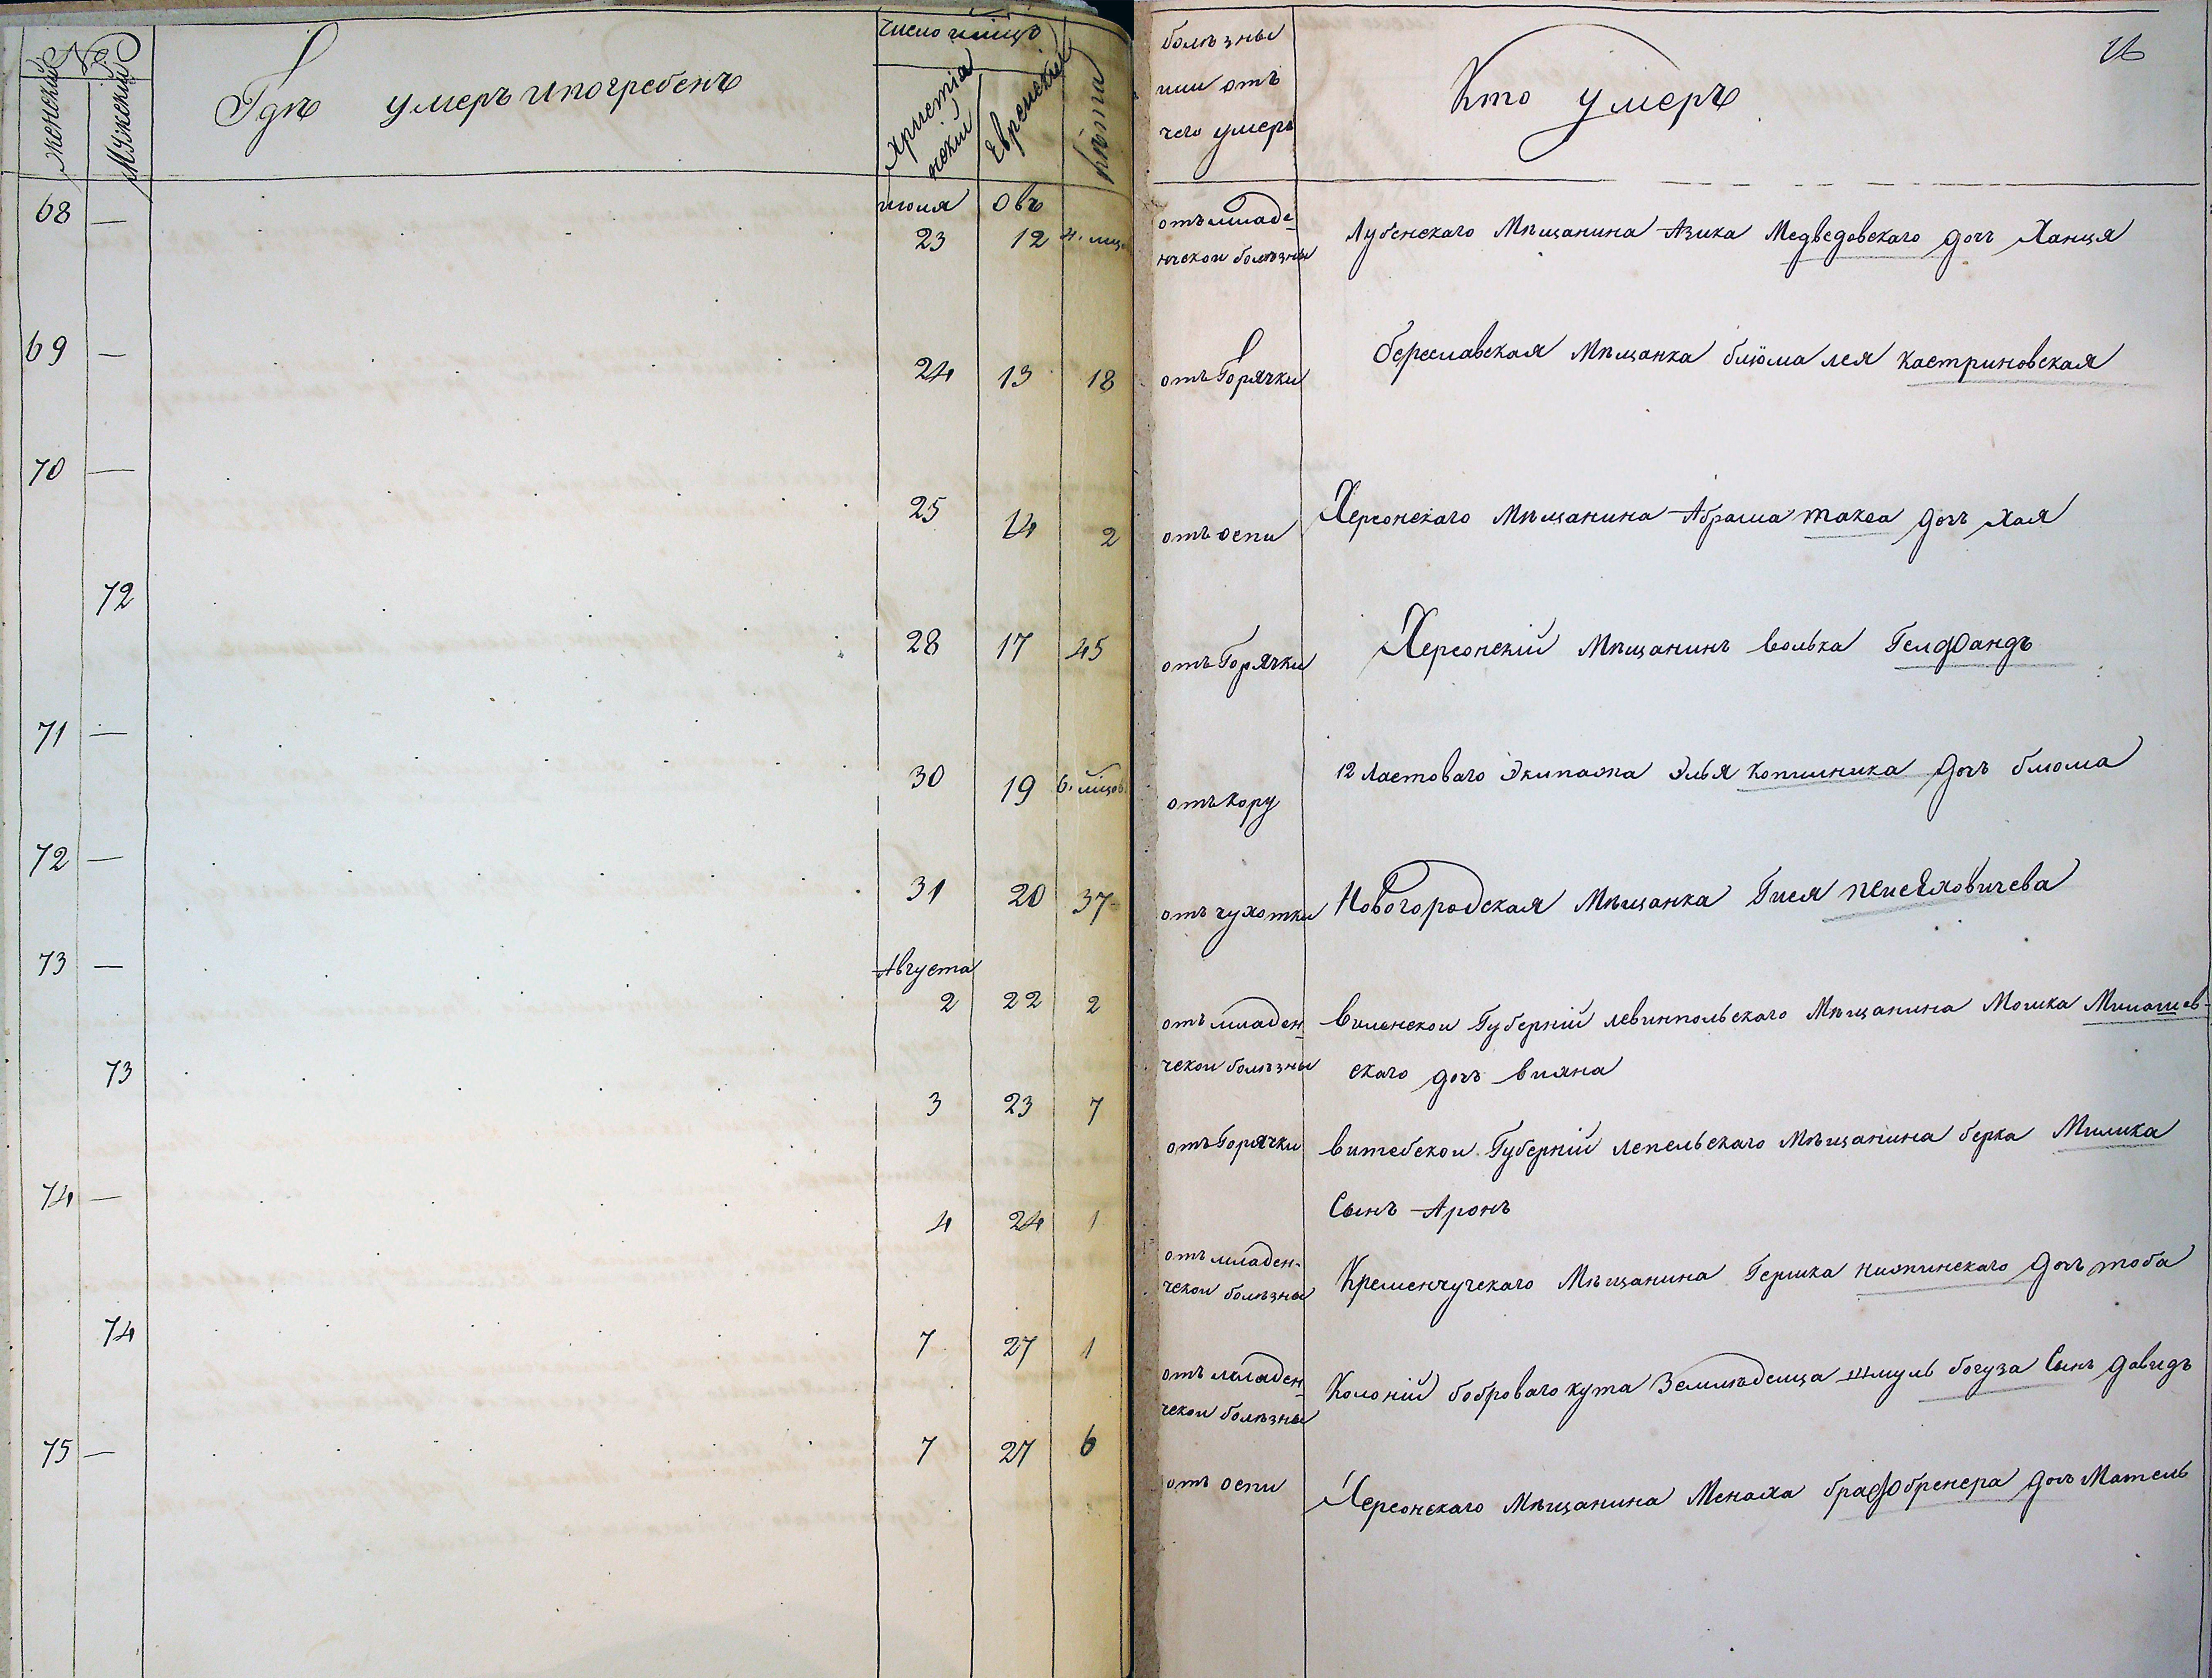 №
Женский
Мужеский
Гдѣ умеръ и погребенъ
число и мѣсяцъ
христiанскiй
Еврейскiй
Лѣта
болѣзны
или отъ
чего умеръ
Кто умеръ
68 — июля 23 Овъ 12 4. мѣц.
отъ младенческои болѣзны
Лубенскаго Мѣщанина Азика Медведовскаго дочь Ханця
69 — 24 13 18
отъ Горячки
береславская Мѣщанка блюма лея кастриновская
70 — 25 14 2
отъ оспи
Херсонскаго Мѣщанина Абрама такса дочь хая
72 28 17 45
отъ Горячки
Херсонскiй Мѣщанинъ волька Гелфандъ
71 — 30 19 6. мѣцов.
отъ кору
12 ластоваго Экипажа Элья копилника дочь блюма
72 — 31 20 37
отъ чухотки
Новогородская Мѣщанка Гися
73 — Августа 2 22 2
отъ младен-
ческои болѣзны
виленскои Губернiй левинпольскаго Мѣщанина Мошка Милашев-
скаго дочь вияна
73 3 23 7
отъ Горячки
витебскои Губернiй лепельскаго Мѣщанина берка Милика
Сынъ Аронъ
74 — 4 24 1
отъ младен-
ческои болѣзны
Кременчугскаго Мѣщанина Гершка нижинскаго дочь тоба
74 7 27 1
отъ младен-
ческои болѣзны
Колонiй боброваго кута Земледелца шмуль богуза Сынъ давидъ
75 — 7 27 6
отъ оспи
Херсонскаго Мѣщанина Менаха брафбренера дочь Матель